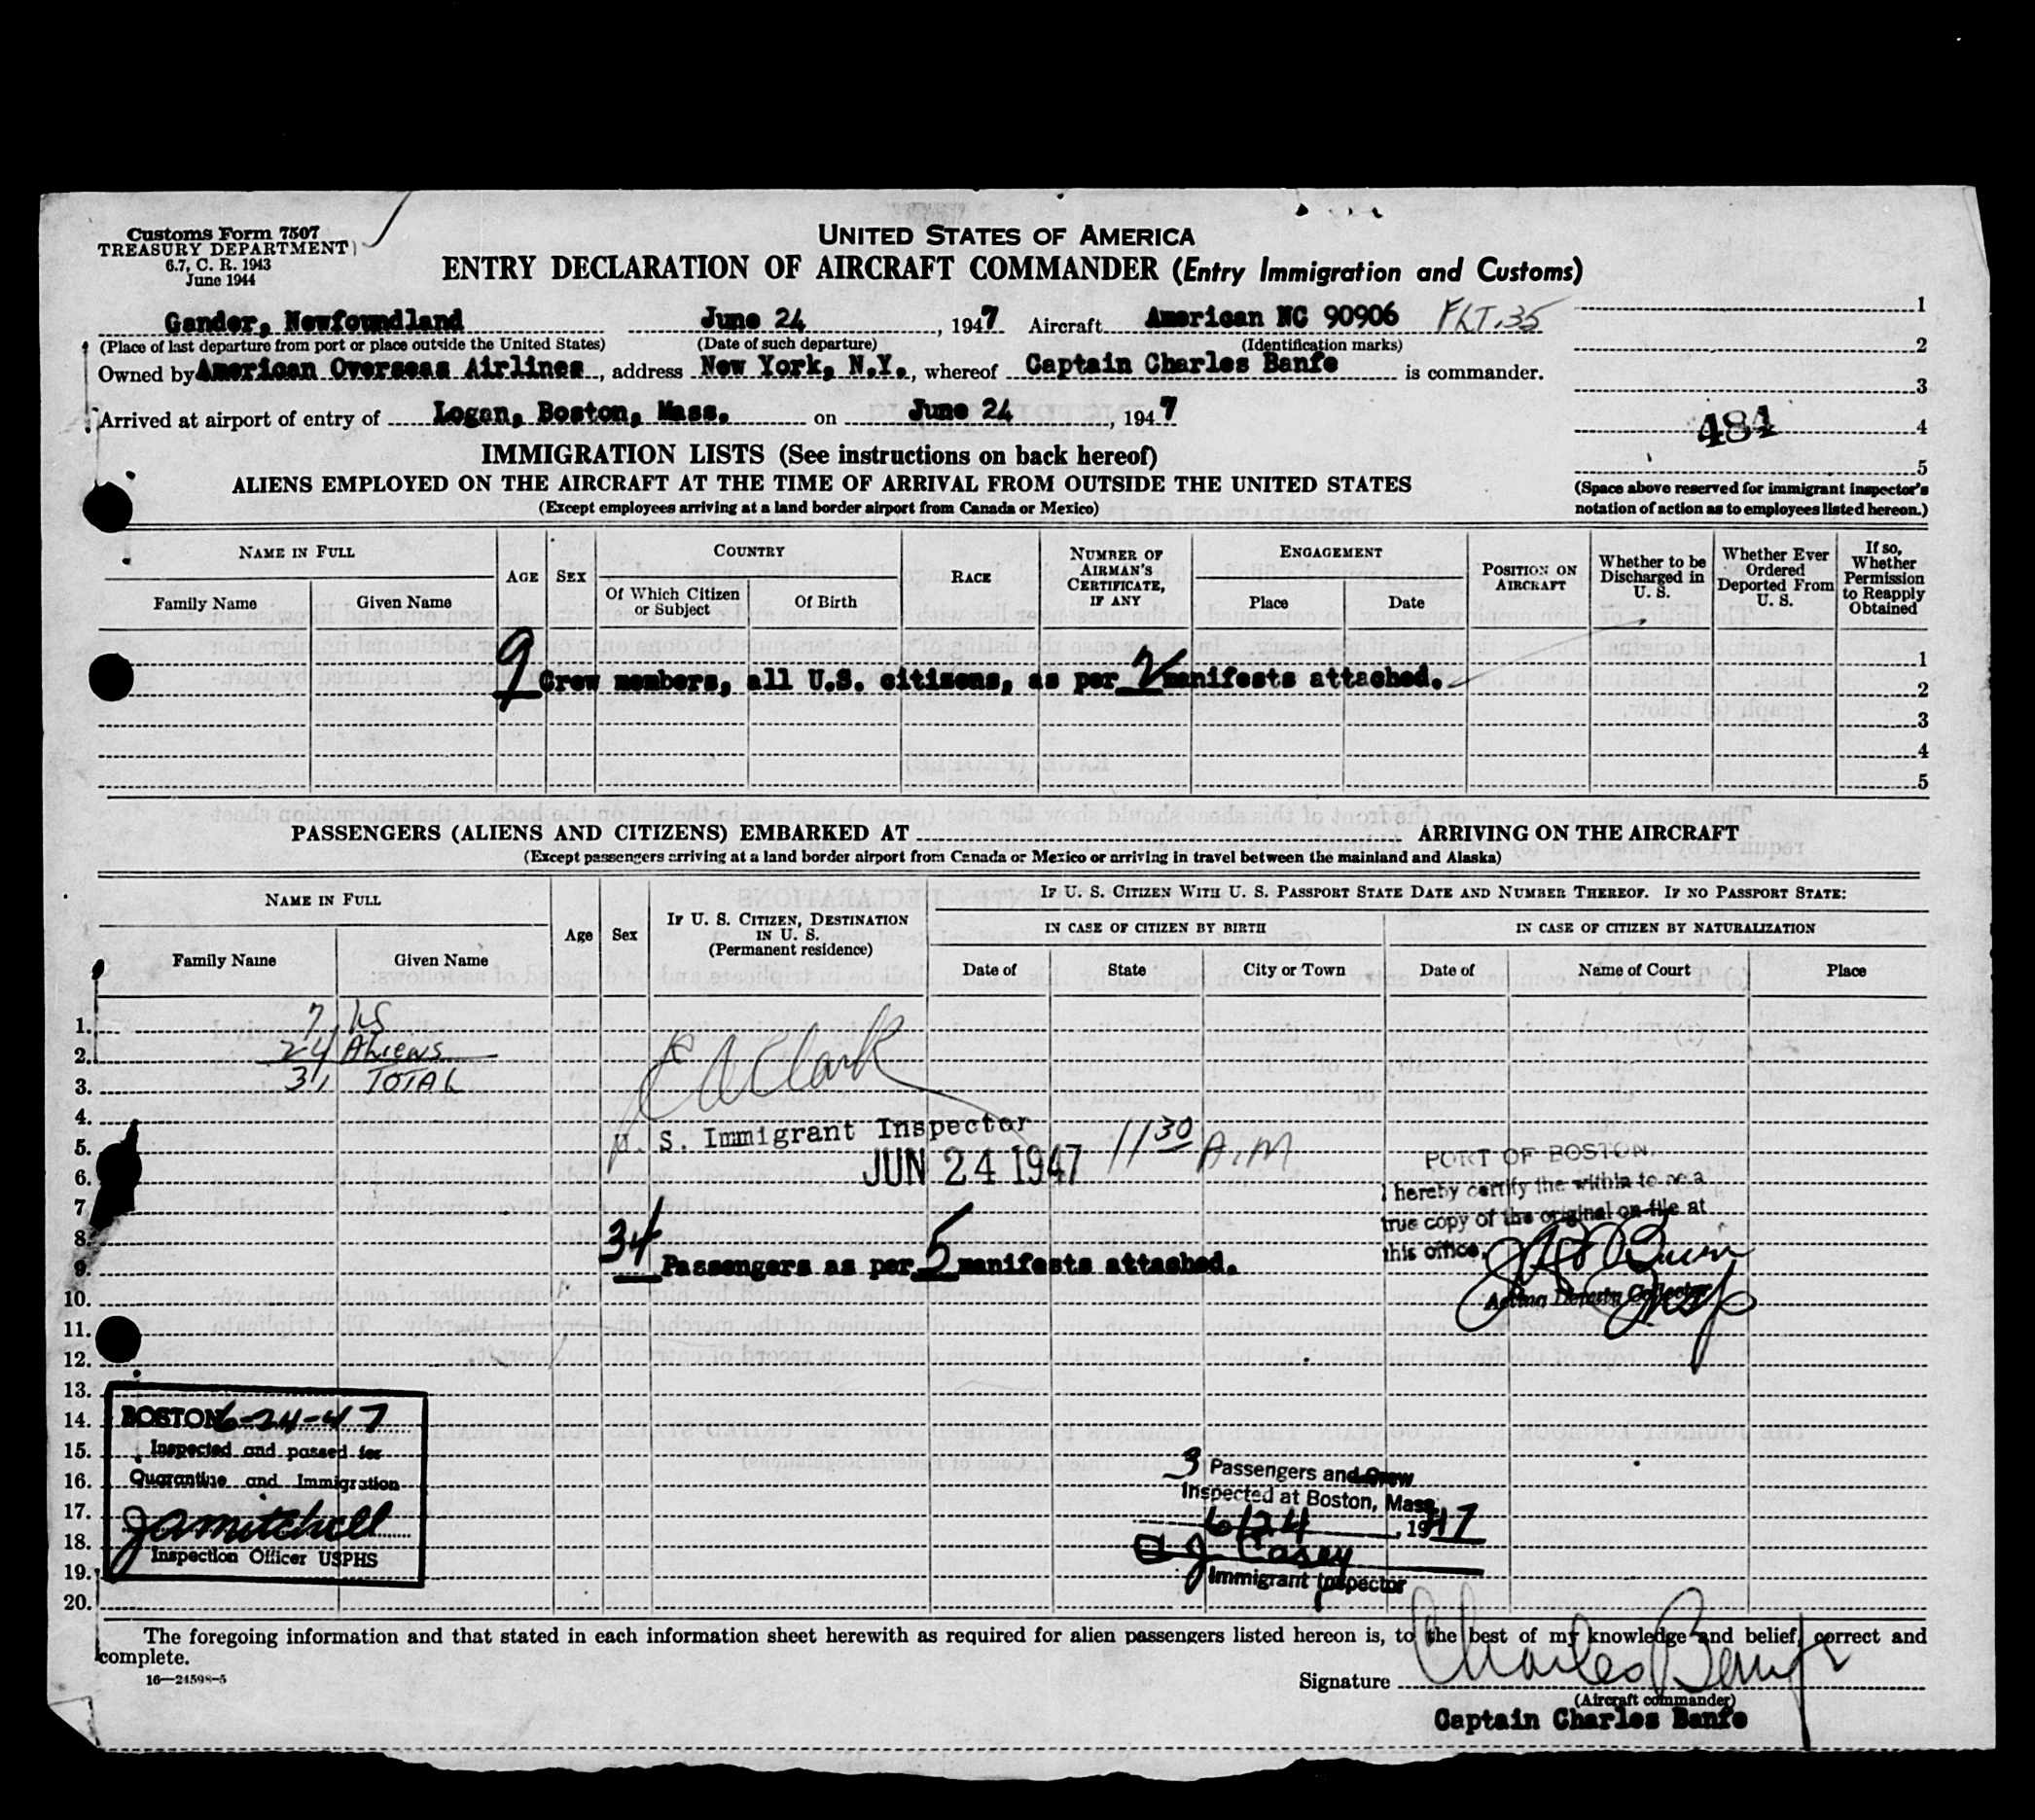 Customs Form 7507
TREASURY DEPARTMENT
6.7, C. R. 1943
June 1944
UNITED STATES OF AMERICA
ENTRY DECLARATION OF AIRCRAFT COMMANDER (Entry Immigration and Customs)
Gander, Newfoundland June 24, 1947 Aircraft American NC 90906 FLT. 35 1
(Place of last departure from port or place outside the United States) (Date of such departure) (Identification marks)
2
Owned by American Overseas Airlines, address New York, N.Y., whereof Captain Charles Banfe is commander.
3
Arrived at airport of entry of Logan, Boston, Mass. on June 24, 1947
484 4
5
IMMIGRATION LISTS (See instructions on back hereof)
ALIENS EMPLOYED ON THE AIRCRAFT AT THE TIME OF ARRIVAL FROM OUTSIDE THE UNITED STATES
(Except employees arriving at a land border airport from Canada or Mexico)
(Space above reserved for immigrant inspector's
notation of action as to employees listed hereon.)
NAME IN FULL
Family Name Given Name
AGE SEX
COUNTRY
Of Which Citizen or Subject Of Birth
RACE
NUMBER OF AIRMAN'S CERTIFICATE, IF ANY
ENGAGEMENT
Place Date
POSITION ON AIRCRAFT
Whether to be Discharged in U. S.
Whether Ever Ordered Deported From U. S.
If so, Whether Permission to Reapply Obtained
1
9 Crew members, all U.S. citizens, as per 2 manifests attached. 2
3
4
5
PASSENGERS (ALIENS AND CITIZENS) EMBARKED AT ARRIVING ON THE AIRCRAFT
(Except passengers arriving at a land border airport from Canada or Mexico or arriving in travel between the mainland and Alaska)
NAME IN FULL
Family Name Given Name
Age Sex
IF U. S. CITIZEN, DESTINATION IN U. S.
(Permanent residence)
IF U. S. CITIZEN WITH U. S. PASSPORT STATE DATE AND NUMBER THEREOF. IF NO PASSPORT STATE:
IN CASE OF CITIZEN BY BIRTH IN CASE OF CITIZEN BY NATURALIZATION
Date of State City or Town Date of Name of Court Place
1. 7 US
2. 24 ALIENS
3. 31 TOTAL
Clark
4.
5. U. S. Immigrant Inspector 11 30 A.M
6. JUN 24 1947
PORT OF BOSTON,
I hereby certify the within to be a
7.
true copy of the original on file at
8.
this office,
9. 34 Passengers as per 5 manifests attached.
10. Acting Deputy Collector
11.
12.
13.
14. BOSTON 6-24-47
15. Inspected and passed for
16. Quarantine and Immigration
17. JA Mitchell
18. Inspection Officer USPHS
19.
20.
3 Passengers and Crew
Inspected at Boston, Mass.
6/24, 1947
J Casey
Immigrant Inspector
The foregoing information and that stated in each information sheet herewith as required for alien passengers listed hereon is, to the best of my knowledge and belief, correct and
complete.
16—24598-5
Signature Charles Banfe Jr
(Aircraft commander)
Captain Charles Banfe